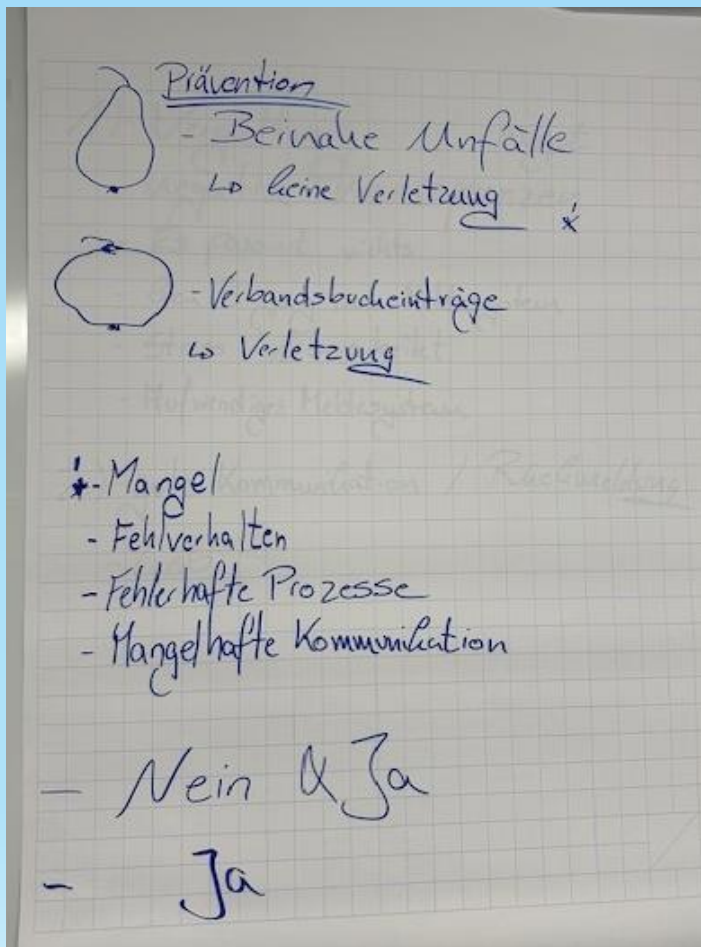 Prävention
- Beinahe Unfälle
↳ keine Verletzung *
- Verbandsbucheinträge
↳ Verletzung
*- Mangel
- Fehlverhalten
- Fehlerhafte Prozesse
- Mangelhafte Kommunikation
- Nein & Ja
- Ja